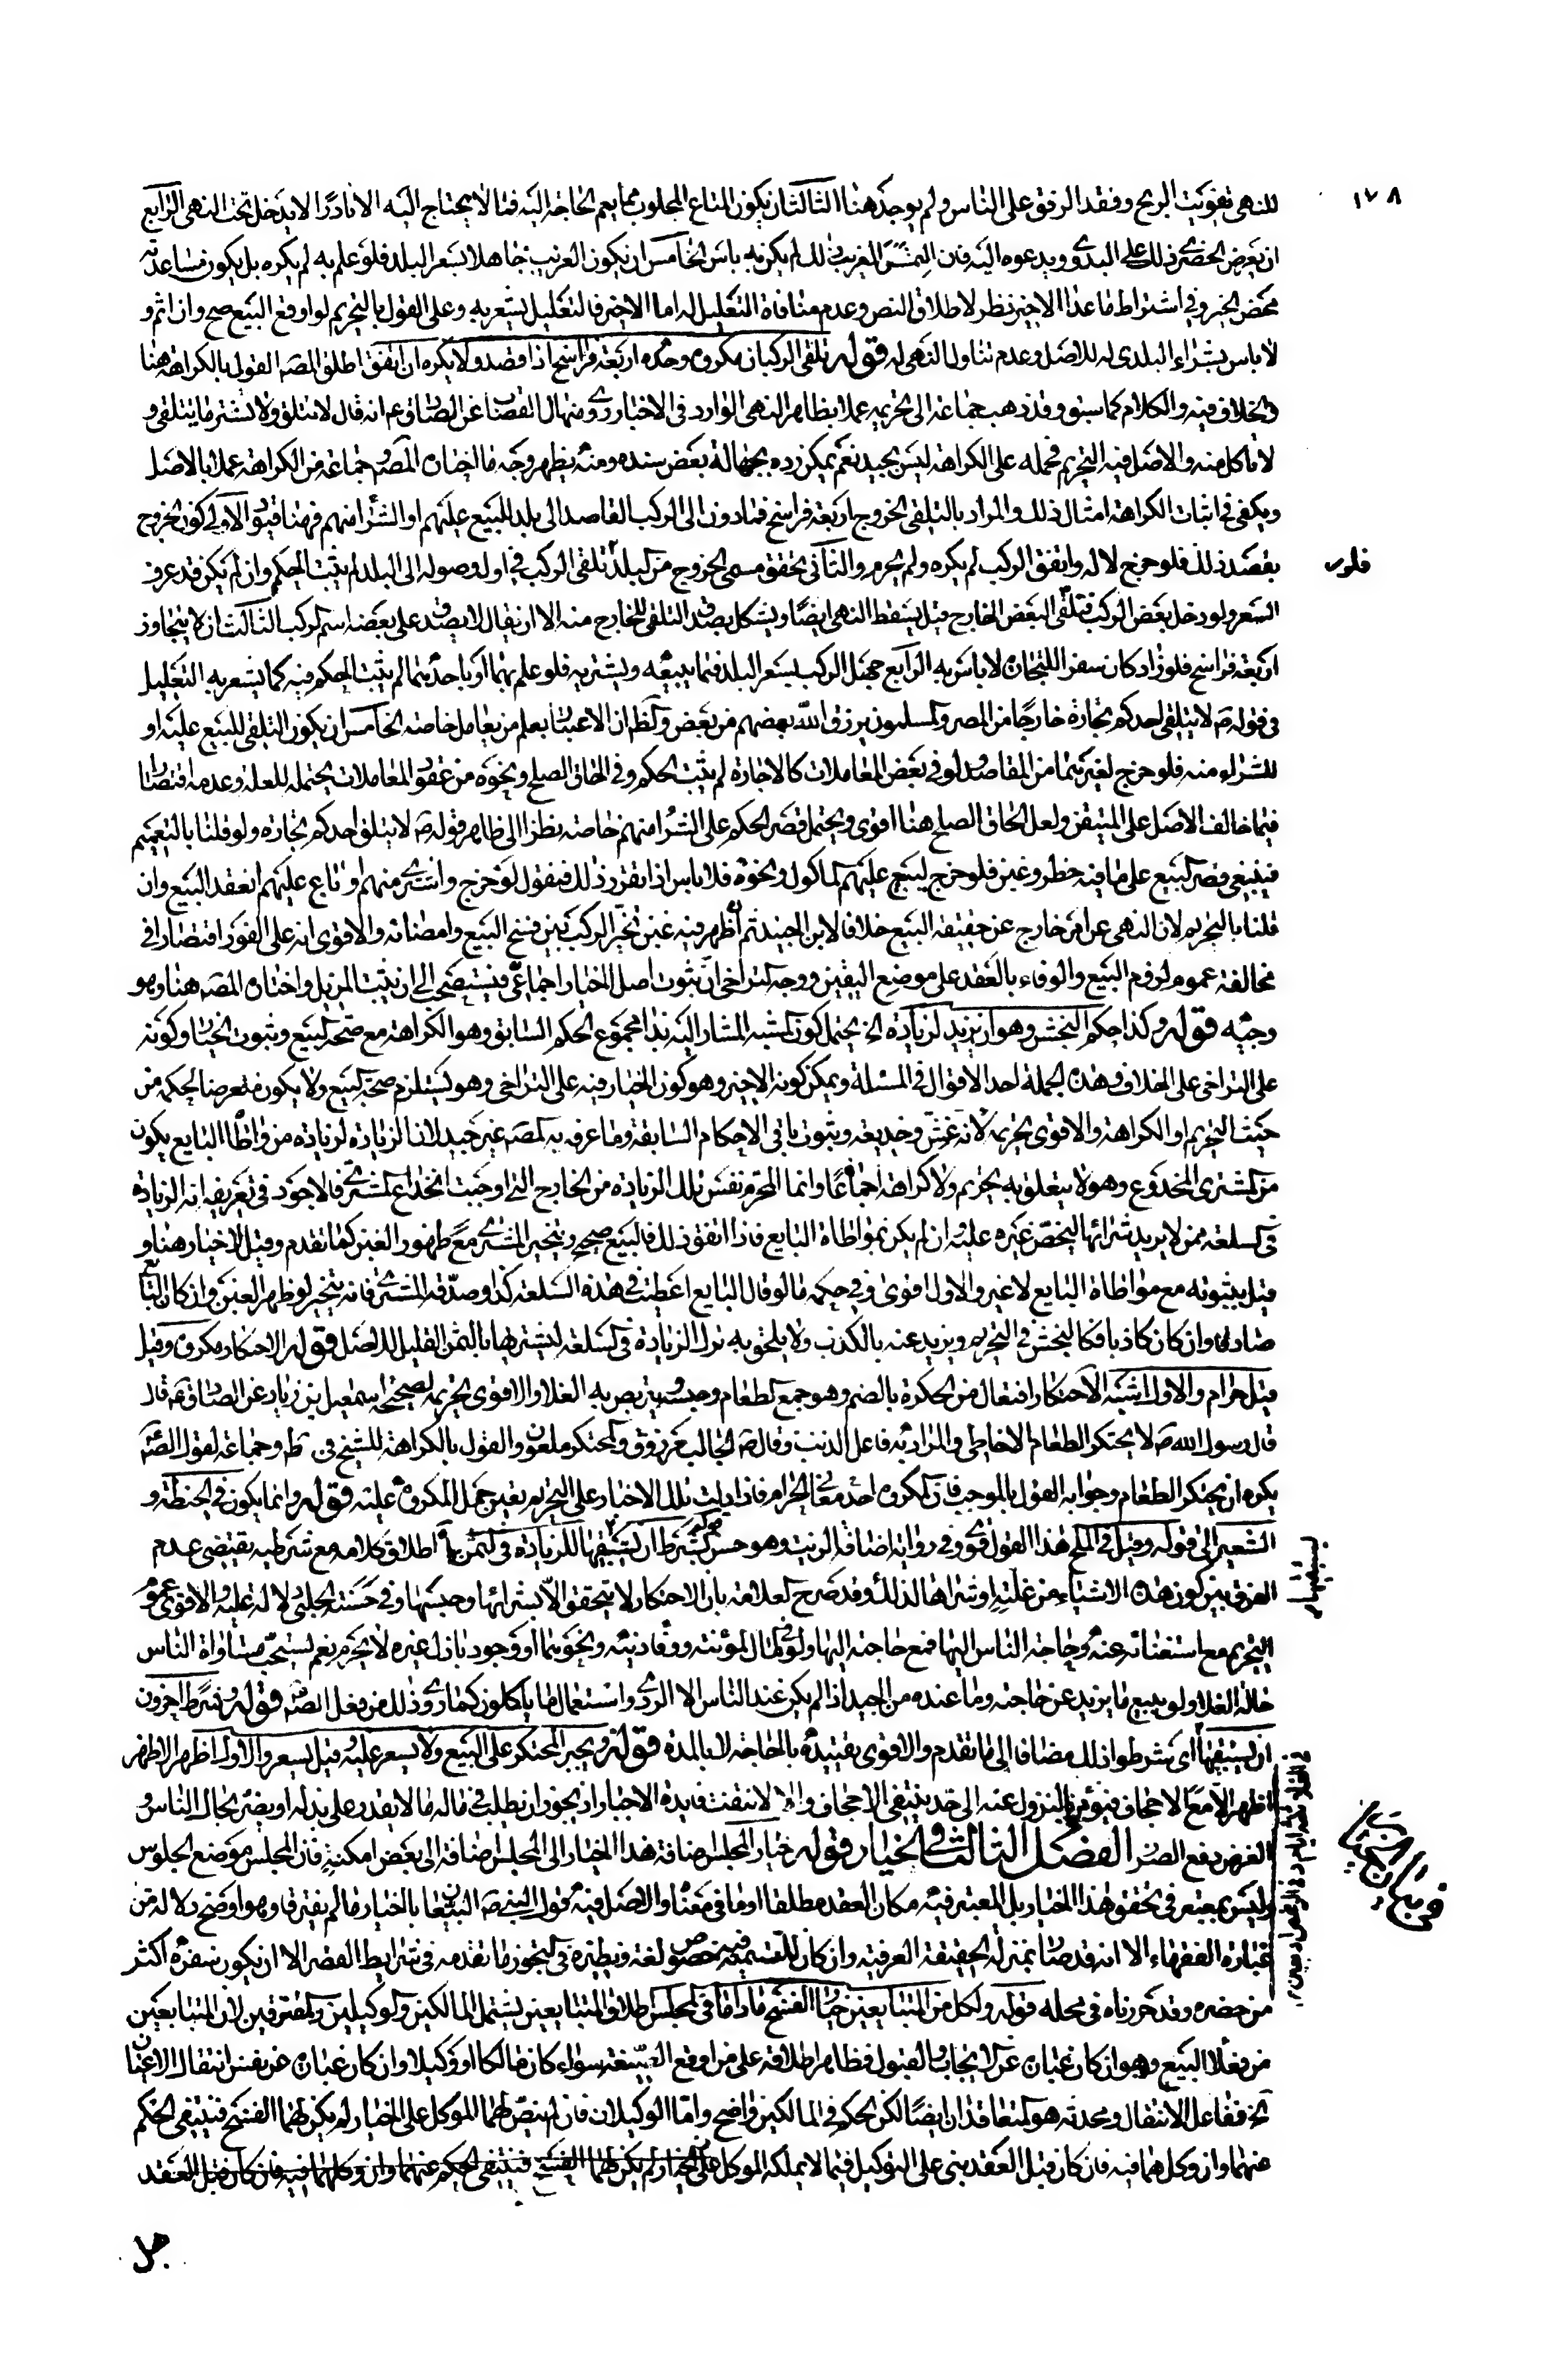 ١٧٨
للنهى تفويت الربح وفقد الرفق على الناس ولم يوجد هنا الثالث ان يكون المتاع المجلوب مما يعم الحاجة اليه فما لا يحتاج اليه الا نادرا لا يدخل تحت النهى الرابع
ان يعرض الحضرى ذلك على البدوى ويدعوه اليه فان التمس الغريب ذلك لم يكن به باس الخامس ان يكون الغريب جاهلا بسعر البلد فلو علم به لم يكره بل يكون مساعدته
محض الخير وفى اشتراط ما عدا الاخير نظر لاطلاق النص وعدم منافاة التعليل له اما الاخير فالتعليل يشعر به وعلى القول بالتحريم لو اوقع البيع صح وان اثم و
لا باس بشراء البلدى له للاصل وعدم تناول النهى له قوله تلقى الركبان مكروه وحده اربعة فراسخ اذا قصد ولا يكره ان اتفق اطلق المصه القول بالكراهة هنا
والخلاف فيه والكلام كما سبق وقد ذهب جماعة الى تحريمه عملا بظاهر النهى الوارد فى الاخبار روى منهال القصاب عن الصادق ع انه قال لا تتلق ولا تشتر ما يتلقى و
لا تاكل منه والاصل فيه التحريم فحمله على الكراهة ليس بجيد نعم يمكن رده بجهالة بعض سنده ومنه يظهر وجه ما اختاره المصه وجماعة من الكراهة عملا بالاصل
ويكفى فى اثبات الكراهة امثال ذلك والمراد بالتلقى الخروج اربعة فراسخ فما دون الى الركب القاصد الى بلد للبيع عليهم او الشراء منهم فهنا قيود الاول كون الخروج
بقصد ذلك فلو خرج لا له واتفق الركب لم يكره ولم يحرم والثانى تحقق مسمى الخروج من البلد فلو تلقى الركب فى اول وصوله الى البلد لم يثبت الحكم وان لم يكن قد عرف
السعر ولو دخل بعض الركب فتلقى البعض الخارج قيل يسقط النهى ايضا ويشكل بصدق التلقى للخارج منه الا ان يقال لا يصدق على بعضه اسم الركب الثالث ان لا يتجاوز
اربعة فراسخ فلو زاد كان سفر اللتجارة لا باس به الرابع جهل الركب بسعر البلد فيما يبيعه ويشتريه فلو علم بهما او باحدهما لم يثبت الحكم فيه كما يشعر به التعليل
فى قوله ص لا يتلقى احدكم تجارة خارجا من المصر والمسلمون يرزق الله بعضهم من بعض والظ ان الاعتبار بعلم من يعامل خاصة الخامس ان يكون التلقى للبيع عليه او
للشراء منه فلو خرج لغيرهما من المقاصد ولو فى بعض المعاملات كالاجارة لم يثبت الحكم وفى الحاق الصلح ونحوه من عقود المعاملات يحتمله للعلة وعدمه اقتصارا
فيما خالف الاصل على المتيقن ولعل الحاق الصلح هنا اقوى ويحتمل قصر الحكم على الشراء منهم خاصة نظرا الى ظاهر قوله ص لا يتلق احدكم تجارة ولو قلنا بالتعميم
فينبغى قصر البيع على ما فيه خطر وغبن فلو خرج ليبيع عليهم المأكول ونحوه فلا باس اذا تقرر ذلك فنقول لو خرج واشترى منهم او باع عليهم انعقد البيع وان
قلنا بالتحريم لان النهى عن امر خارج عن حقيقة البيع خلافا لابن الجنيد ثم ان ظهر فيه غبن تخير الركب بين فسخ البيع وامضائه والاقوى انه على الفور اقتصارا فى
مخالفة عموم لزوم البيع والوفاء بالعقد على موضع اليقين ووجه التراخى ان ثبوت اصل الخيار اجماعى فيستصحب الى ان يثبت المزيل واختاره المصه هنا وهو
وجيه قوله وكذا حكم النجش وهو ان يزيد لزيادة الخ يحتمل كون المشبه المشار اليه بذا مجموع الحكم السابق وهو الكراهة مع صحة البيع وثبوت الخيار وكونه
على التراخى على الخلاف وهذه الجملة احد الاقوال فى المسئلة ويمكن كونه الاخير وهو كون الخيار فيه على التراخى وهو يستلزم صحة البيع ولا يكون متعرضا لحكمه من
حيث التحريم او الكراهة والاقوى تحريمه لانه غش وخديعة وثبوت باقى الاحكام السابقة وما عرفه به المصه غير جيد لان الزيادة لزيادة من واطأه البايع يكون
من المشترى المخدوع وهو لا يتعلق به تحريم ولا كراهة اجماعا وانما المحرم نفس تلك الزيادة من الخارج التى اوجبت انخداع المشترى فالاجود فى تعريفه انه الزيادة
فى السلعة ممن لا يريد شرائها ليحض غيره عليه وان لم يكن بمواطاة البايع فاذا اتفق ذلك فالبيع صحيح ويتخير المشترى مع ظهور الغبن كما تقدم وقيل لا خيار هنا و
قيل بثبوته مع مواطاة البايع لا غير والاول اقوى وفى حكمه ما لو قال البايع اعطيت فى هذه السلعة كذا وصدقه المشترى فانه يتخير لو ظهر الغبن وان كان البايع
صادقا وان كان كاذبا فكالنجش فى التحريم ويزيد عنه بالكذب ولا يلحق به ترك الزيادة فى السلعة ليشتريها بالثمن القليل للاصل قوله الاحتكار مكروه وقيل
قيل حرام والاول اشبه الاحتكار افتعال من الحكرة بالضم وهو جمع الطعام وحبسه يتربص به الغلاء والاقوى تحريمه لصحيحة اسمعيل بن زياد عن الصادق ع قال
قال رسول الله ص لا يحتكر الطعام الا خاطى والمراد به فاعل الذنب وقال ص الجالب مرزوق والمحتكر ملعون والقول بالكراهة للشيخ فى ط وجماعة لقول الصه
يكره ان يحتكر الطعام وجوابه القول بالموجب فان المكروه احد معانى الحرام فاذا دلت تلك الاخبار على التحريم تعين حمل المكروه عليه قوله وانما يكون فى الحنطة و
الشعير الى قوله وقيل فى الملح هذا القول قوى وفى رواية اضافة الزيت وهو حسن قوله بشرط ان يستبقيها للزيادة فى الثمن اطلاق كلامه مع شرطيه يقتضى عدم
الفرق بين كون هذه الاشياء من غلته او شراها لذلك وقد صرح العلامة بان الاحتكار لا يتحقق الا بشرائها وحبسها وفى حسنة الحلبى دلالة عليه والاقوى عموم
التحريم مع استغنائه عنه وحاجة الناس اليها فمع حاجته اليها ولو فى مال لمؤنته ووفاء دينه ونحوهما او وجود باذل غيره لا يحرم نعم يستحب مساواة الناس
حالة الغلاء ولو ببيع ما يزيد عن حاجته وما عنده من الجيد اذا لم يكن عند الناس الا الردى واستعمال ما ياكلون كما روى ذلك من فعل الصه قوله وشرط اخرون
ان يستبقيها اى شرطوا ذلك مضافا الى ما تقدم والاقوى تقييده بالحاجة لا بالمدة قوله ويجبر المحتكر على البيع ولا يسعر عليه وقيل يسعر والاول اظهر الاظهر
اظهر الا مع الاجحاف فيؤمر بالنزول عنه الى حد ينتفى الاجحاف والا لانتفت فايدة الاجبار اذ يجوز ان يطلب فى ماله ما لا يقدر على بذله او يضر بحال الناس و
الغرض دفع الضرر الفصل الثالث فى الخيار قوله خيار المجلس اضافة هذا الخيار الى المجلس اضافة الى بعض امكنته فان المجلس موضع الجلوس
وليس بمعتبر فى تحقق هذا الخيار بل المعتبر فيه مكان العقد مطلقا او ما فى معناه والاصل فيه قول النبى ص البيعان بالخيار ما لم يفترقا وهو اوضح دلالة من
عبارة الفقهاء الا انه قد صار بمنزلة الحقيقة العرفية وان كان للتسمية خصوص لغة ونظيره فى التجوز ما تقدمه فى شرايط القصر الا ان يكون سفره اكثر
من حضره وقد حررناه فى محله قوله ولكل من المتبايعين خيار الفسخ ما داما فى المجلس اطلاق المتبايعين يشتمل المالكين والوكيلين والمتفرقين لان المتبايعين
من فعلا البيع وهو ان كان عبارة عن الايجاب والقبول فظاهر اطلاقه على من اوقع الصيغة سواء كان مالكا او وكيلا وان كان عبارة عن نفس انتقال الاعيان
الخ ففاعل الانتقال ومحدثه هو المتعاقدان ايضا لكن الحكم فى المالكين واضح واما الوكيلان فان لم ينص لهما الموكل على الخيار لم يكن لهما الفسخ فينتفى الحكم
عنهما وان وكلهما فيه فان كان قبل العقد بنى على التوكيل فيما لا يملكه الموكل على الخيار لم يكن لهما الفسخ فينتفى الحكم عنهما وان وكلهما فيه فان كان قبل العقد
فلو
يستبقيها